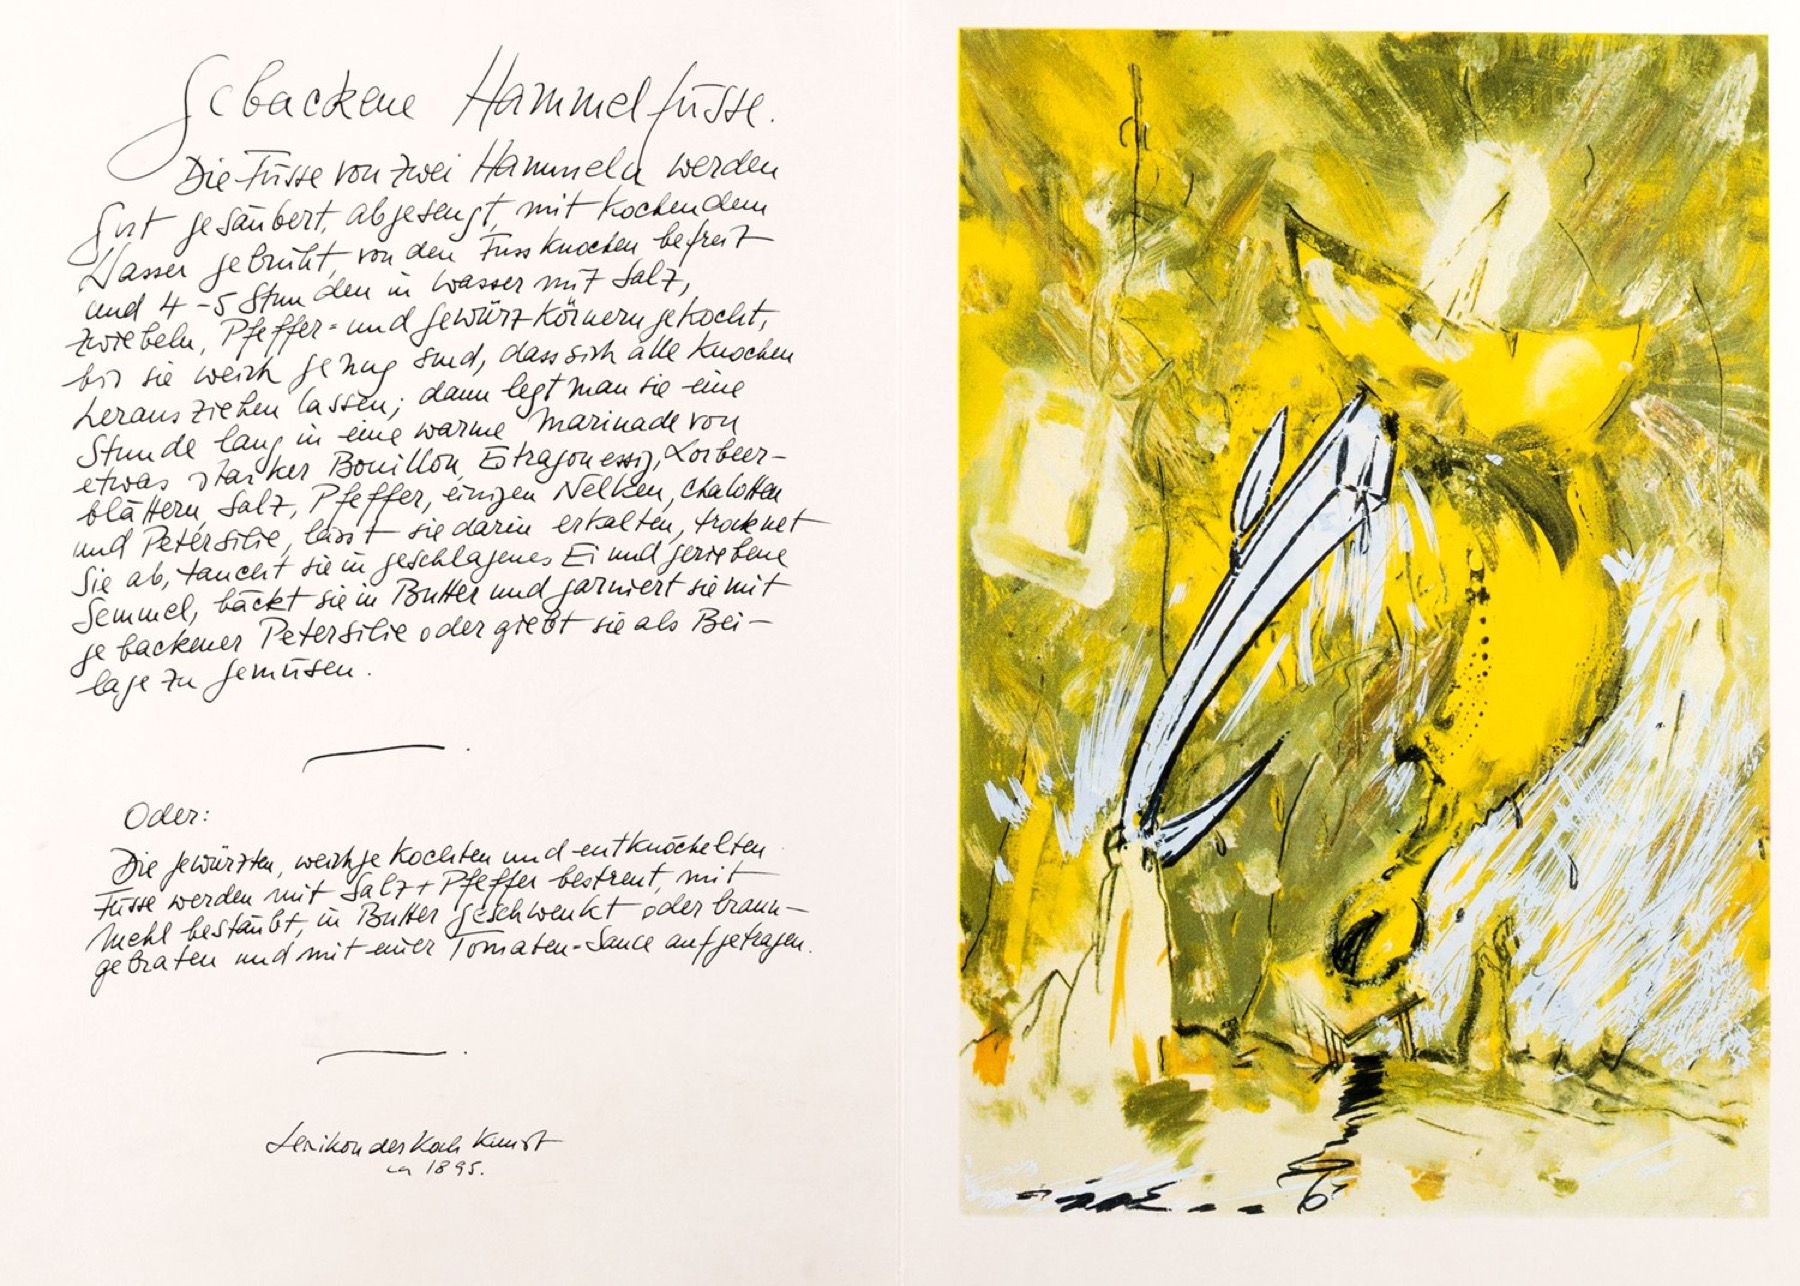 Gebackene Hammelfüsse.
Die Füsse von zwei Hammeln werden
gut gesäubert, abgesengt, mit kochendem
Wasser gebrüht, von den Fussknochen befreit
und 4-5 Stunden in Wasser mit Salz,
Zwiebeln, Pfeffer- und Gewürzkörnern gekocht,
bis sie weich genug sind, dass sich alle Knochen
herausziehen lassen; dann legt man sie eine
Stunde lang in eine warme Marinade von
etwas starker Bouillon, Estragonessig, Lorbeer-
blättern, Salz, Pfeffer, einigen Nelken, Chalotten
und Petersilie, lässt sie darin erkalten, trocknet
sie ab, taucht sie in geschlagenes Ei und geriebene
Semmel, bäckt sie in Butter und garniert sie mit
gebackener Petersilie oder giebt sie als Bei-
lage zu Gemüsen.
Oder:
Die gewürzten, weichgekochten und entknöchelten
Füsse werden mit Salz + Pfeffer bestreut, mit
Mehl bestäubt, in Butter geschwenkt oder braun-
gebraten und mit einer Tomaten-Sauce aufgetragen.
Lexikon der Kochkunst
ca 1895.